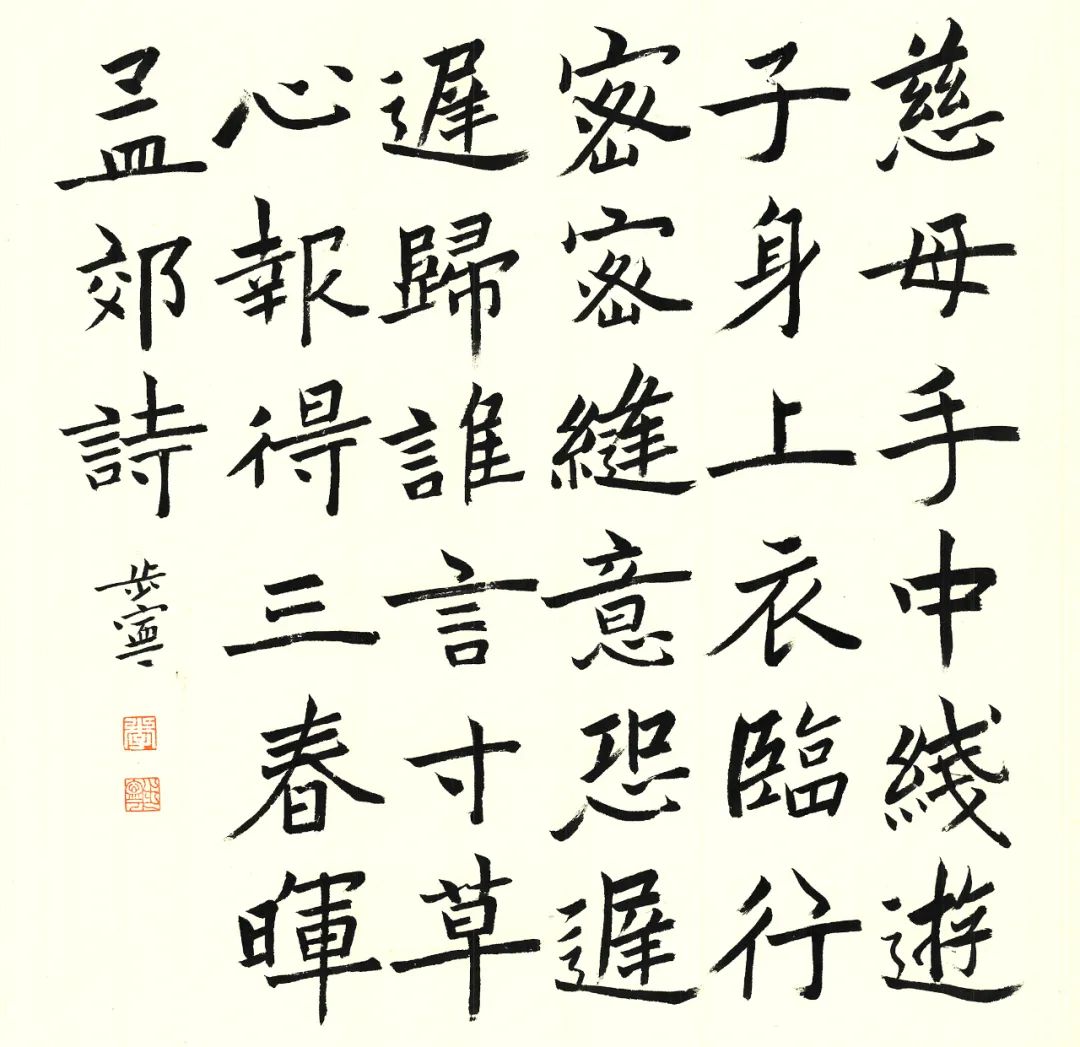 慈母手中綫遊
子身上衣臨行
密密縫意恐遲
遲歸誰言寸草
心報得三春暉
孟郊詩 步寧